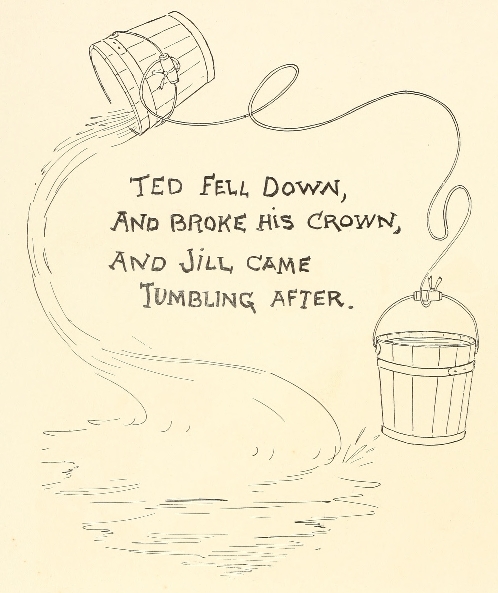 TED FELL DOWN,
AND BROKE HIS CROWN,
AND JILL CAME
TUMBLING AFTER.